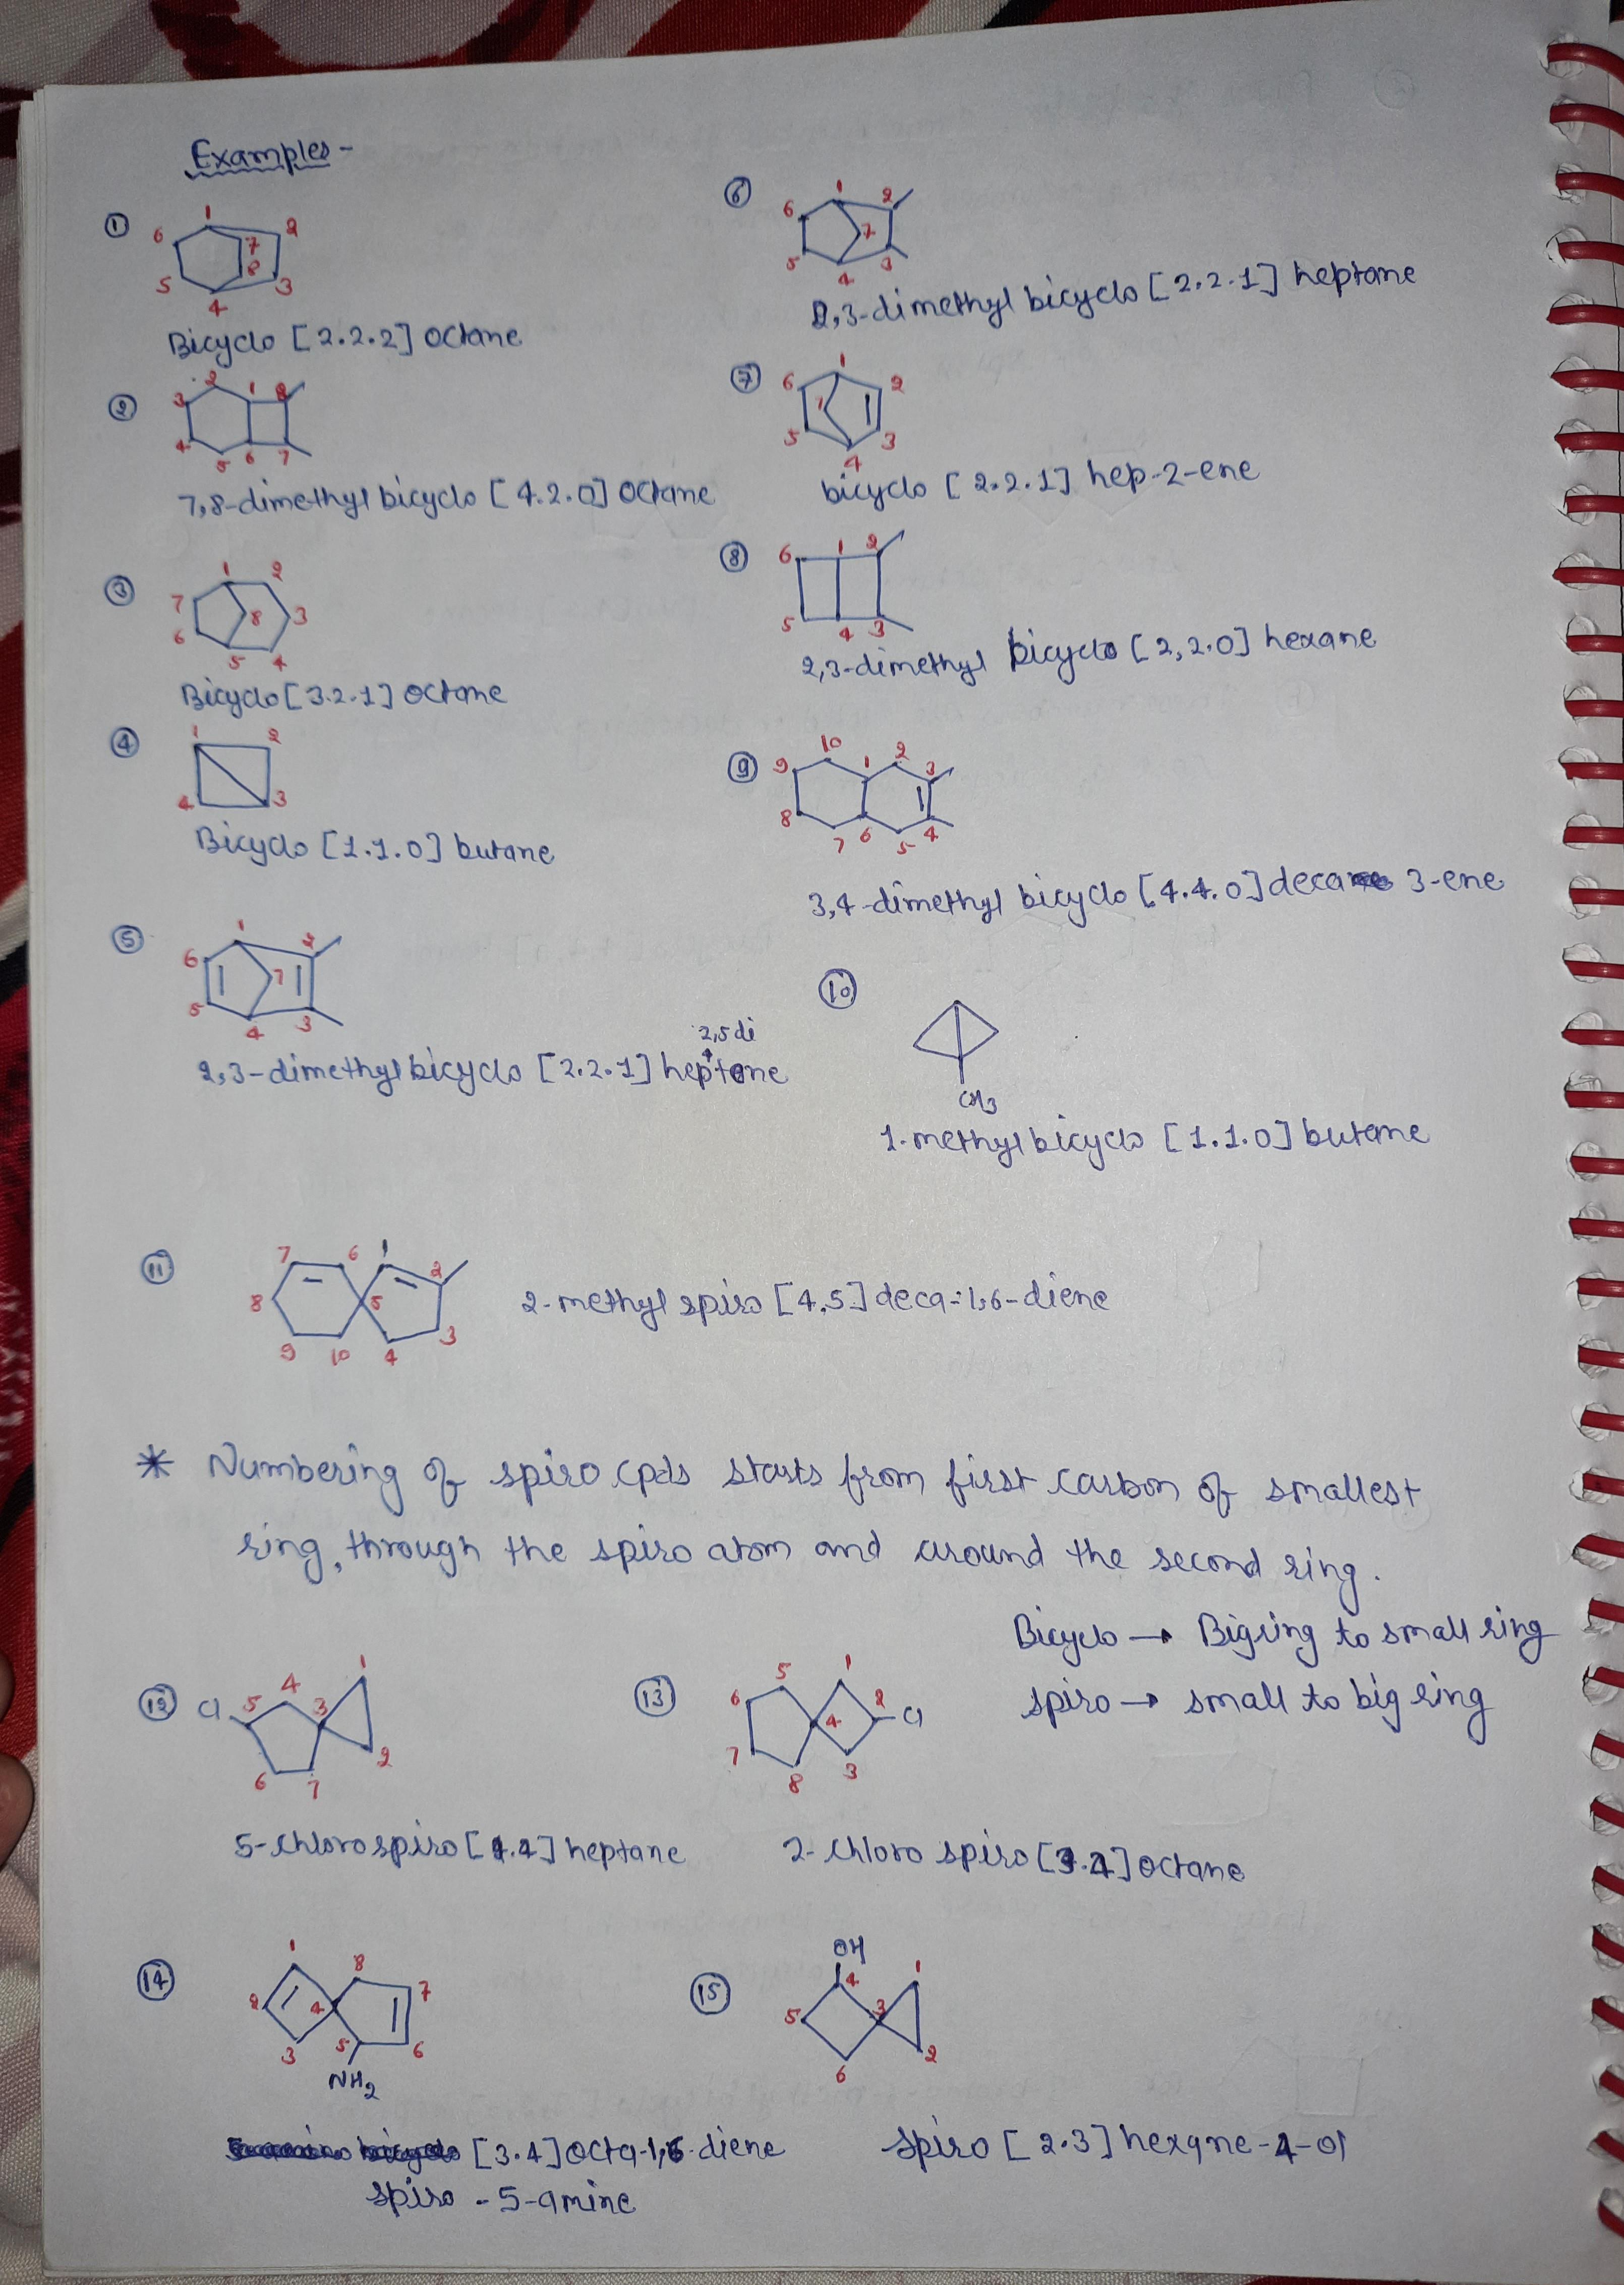 Examples -
①
1
6
2
7
8
5
3
4
Bicyclo [2.2.2] octane
②
2
1
8
3
4
5
6
7
7,8-dimethyl bicyclo [4.2.0] octane
③
1
2
7
8
3
6
5
4
Bicyclo [3.2.1] octane
④
1
2
4
3
Bicyclo [1.1.0] butane
⑤
1
2
6
7
5
4
3
2,5 di
2,3-dimethyl bicyclo [2.2.1] heptene
⑥
1
2
6
7
5
4
3
2,3-dimethyl bicyclo [2.2.1] heptane
⑦
1
6
2
7
5
3
4
bicyclo [2.2.1] hep-2-ene
⑧
6
1
2
5
4
3
2,3-dimethyl bicyclo [2,2.0] hexane
⑨
10
2
9
1
3
8
4
7
6
5
3,4-dimethyl bicyclo [4.4.0] deca 3-ene
⑩
CH3
1-methyl bicyclo [1.1.0] butane
⑪
7
6
1
2
8
5
9
10
4
3
2-methyl spiro [4,5] deca-1,6-diene
* Numbering of spiro cpds starts from first carbon of smallest
ring, through the spiro atom and around the second ring.
Bicyclo → Big ring to small ring
spiro → small to big ring
⑫
Cl
5
4
3
1
6
7
2
5-chloro spiro [ .4] heptane
⑬
5
1
6
2
Cl
4
7
8
3
2-chloro spiro [3.4] octane
⑭
1
8
2
4
7
3
5
6
NH2
[3.4] octa-1,6-diene
spiro -5-amine
⑮
OH
4
1
5
3
2
6
spiro [2.3] hexane-4-ol